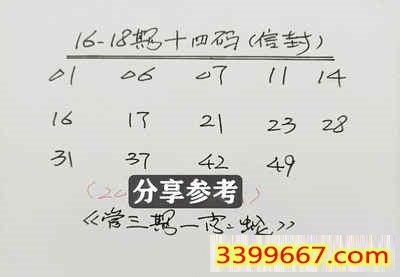 16-18期十四码(信封)
01 06 07 11 14
16 17 21 23 28
31 37 42 49
(20
分享参考
)
《常三期一肖:蛇》
3399667.com